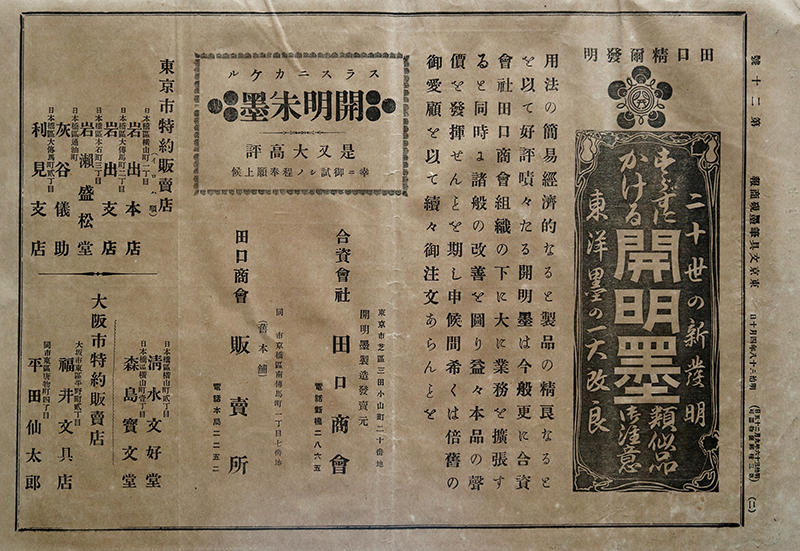 號二十第
東京文具筆墨硯商報
明治三十八年四月十日
(一)
田口精爾發明
二十世の新發明
すらずに
かける
開明墨
類似品
御注意
東洋墨の一大改良
用法の簡易經濟的なると製品の精良なると
を以て好評嘖々たる開明墨は今般更に合資
會社田口商會組織の下に大に業務を擴張す
ると同時よ諸般の改善を圖り益々本品の聲
價を發揮せんとを期し申候間希くは倍舊の
御愛顧を以て續々御注文あらんとを
スラスニカケル
開明朱墨
是又大高評
幸ニ御試ノ程奉願上候
東京市芝區三田小山町二十番地
開明墨製造發賣元
合資會社 田口商會
電話新橋二八六五
同市京橋區南傳馬町一丁目七番地
(舊本舖)
田口商會 販賣所
電話本局二二五二
東京市特約販賣店
日本橋區橫山町一丁目
岩出本店
日本橋區大傳馬町二丁目
岩出支店
日本橋區本石町三丁目
岩瀨盛松堂
日本橋區通油町
灰谷儀助
日本橋區大傳馬町貳丁目
利見支店
日本橋區橫山町貳丁目
清水文好堂
日本橋區橫山町壹丁目
森島寶文堂
大阪市特約販賣店
大坂市東區平野町貳丁目
福井文具店
同市東區唐物町四丁目
平田仙太郎